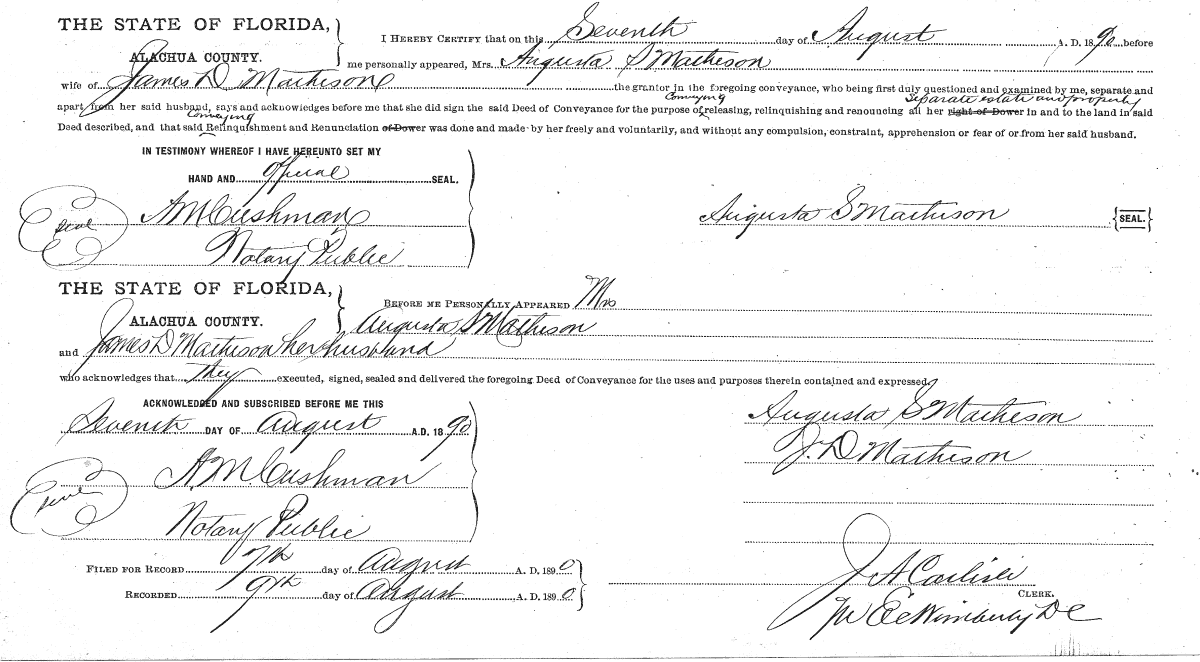 THE STATE OF FLORIDA,
ALACHUA COUNTY.
I HEREBY CERTIFY that on this Seventh day of August A. D. 1890 before
me personally appeared, Mrs. Augusta S Matheson
wife of James D Matheson the grantor in the foregoing conveyance, who being first duly questioned and examined by me, separate and
Conveying separate estate and property
apart from her said husband, says and acknowledges before me that she did sign the said Deed of Conveyance for the purpose of releasing, relinquishing and renouncing all her right of Dower in and to the land in said
Conveying
Deed described, and that said Relinquishment and Renunciation of Dower was done and made by her freely and voluntarily, and without any compulsion, constraint, apprehension or fear of or from her said husband.
IN TESTIMONY WHEREOF I HAVE HEREUNTO SET MY
HAND AND official SEAL.
Seal A M Cushman
Notary Public
Augusta S Matheson {SEAL.}
THE STATE OF FLORIDA,
ALACHUA COUNTY.
BEFORE ME PERSONALLY APPEARED Mrs
Augusta S Matheson
and James D Matheson her husband
who acknowledges that they executed, signed, sealed and delivered the foregoing Deed of Conveyance for the uses and purposes therein contained and expressed.
ACKNOWLEDGED AND SUBSCRIBED BEFORE ME THIS
Seventh DAY OF August A.D. 1890
Seal A. M. Cushman
Notary Public
Augusta S Matheson
J. D Matheson
FILED FOR RECORD 7th day of August A. D. 1890
RECORDED 9th day of August A. D. 1890
J A Carlisle
CLERK.
DC